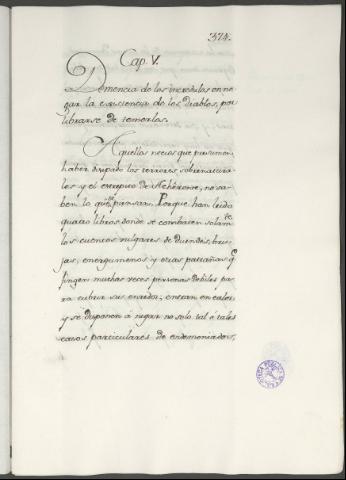 374.
Cap. V.
Demencia de los incredulos en ne
gar la existencia de los Diablos, por
librarse de temerlos.
Aquellos necios que presumen
haber disipado los terrores sobrenatura
les y el estrepito de Acheronte, no sa-
ben lo q.e piensan. Porque han leido
quatro libros donde se combaten solam.te
los cuentos vulgares de duendes, bru-
jas, energumenos y otras patrañas q.e
fingen muchas veces personas debiles pa-
ra cubrir sus enredos; entran en calor,
y se disponen á negar no solo tal ó tales
casos particulares de endemoniados,